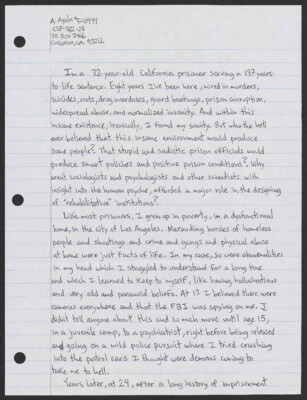 A. Ayala #F10444
CSP-
PO Box 3466
Corcoran, CA. 93212
I'm a 32-year-old California prisoner serving a 137 years-
to-life sentence. Eight years I've been here, mired in murders,
suicides, riots, drug overdoses, guard beatings, prison corruption,
widespread abuse, and normalized insanity. And within this
insane existence, ironically, I found my sanity. But who the hell
ever believed that this insane environment would produce
sane people? That stupid and sadistic prison officials would
produce smart policies and positive prison conditions? Why
arent sociologists and psychologists and other scientists with
insight into the human psyche, afforded a major role in the designing
of "rehabilitative" institutions?
Like most prisoners, I grew up in poverty, in a dysfunctional
home, in the city of Los Angeles. Marauding hordes of homeless
people and shootings and crime and gangs and physical abuse
at home were just facts of life. In my case, so were abnormalities
in my head which I struggled to understand for a long time
and which I learned to keep to myself, like having hallucinations
and very odd and paranoid beliefs. At 13 I believed there were
cameras everywhere and that the FBI was spying on me. I
didn't tell anyone about this and so much more until age 15,
in a juvenile camp, to a psychiatrist, right before being released
and going on a wild police pursuit where I tried crashing
into the patrol cars I thought were demons coming to
take me to hell.
Years later, at 24, after a long history of imprisonment